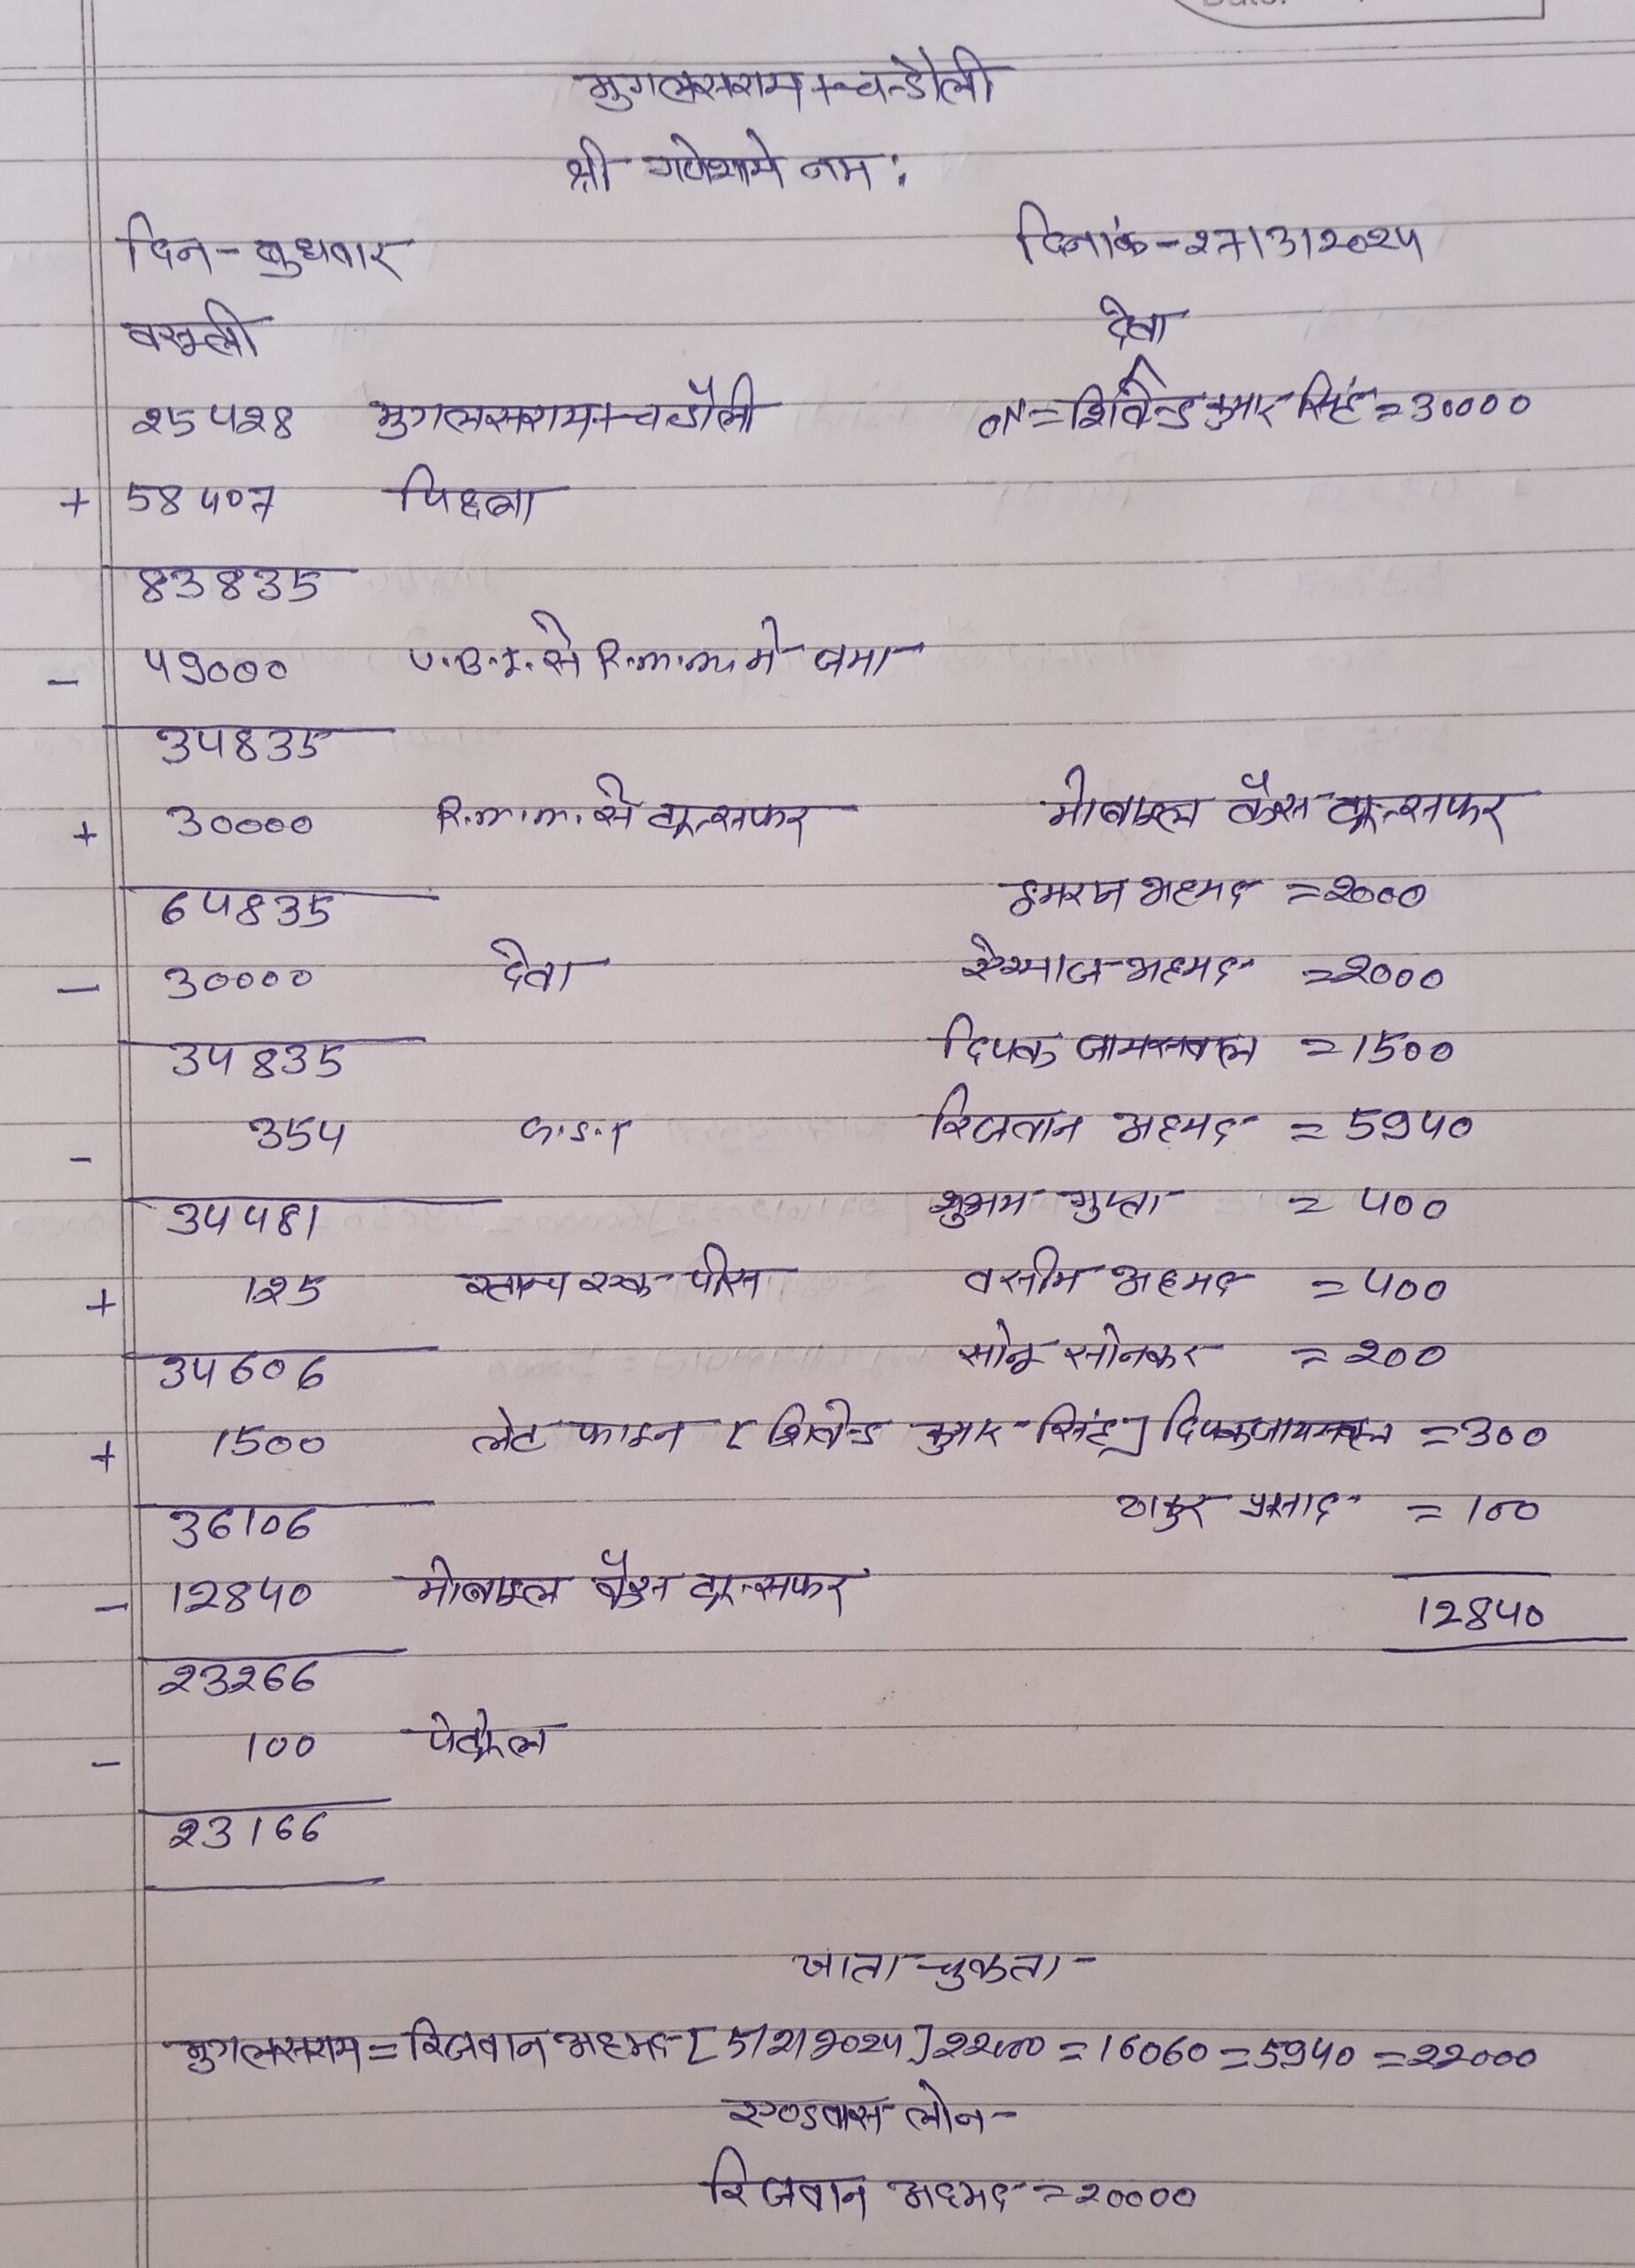 मुगलसराय + चन्डोली
श्री गणेशाये नम:
दिन - बुधवार दिनांक - 27/3/2024
वसूली देवा
25428 मुगलसराय + चन्डौली on = शिवेन्द्र कुमार सिंह = 30000
+ 58407 पिछला
83835
- 49000 U.B.I. से R.m.m. मे जमा
34835
+ 30000 R.m.m. से ट्रान्सफर मोबाइल कैस ट्रान्सफर
64835 इमराज अहमद = 2000
- 30000 देवा ऐजाज अहमद = 2000
34835 दिपक जायसवाल = 1500
- 354 G.S.T रिजवान अहमद = 5940
34481 शुभम गुप्ता = 400
+ 125 स्टाम्प एक पीस वसीम अहमद = 400
34606 सोनू सोनकर = 200
+ 1500 लेट फाइन [ शिवेन्द्र कुमार सिंह ] दिपक जायसवाल = 300
36106 ठाकुर प्रसाद = 100
- 12840 मोबाइल कैस ट्रान्सफर 12840
23266
- 100 पेट्रोल
23166
खाता चुकता -
मुगलसराय = रिजवान अहमद [ 5/2/2024 ] 22000 = 16060 = 5940 = 22000
एण्डवास लोन -
रिजवान अहमद = 20000